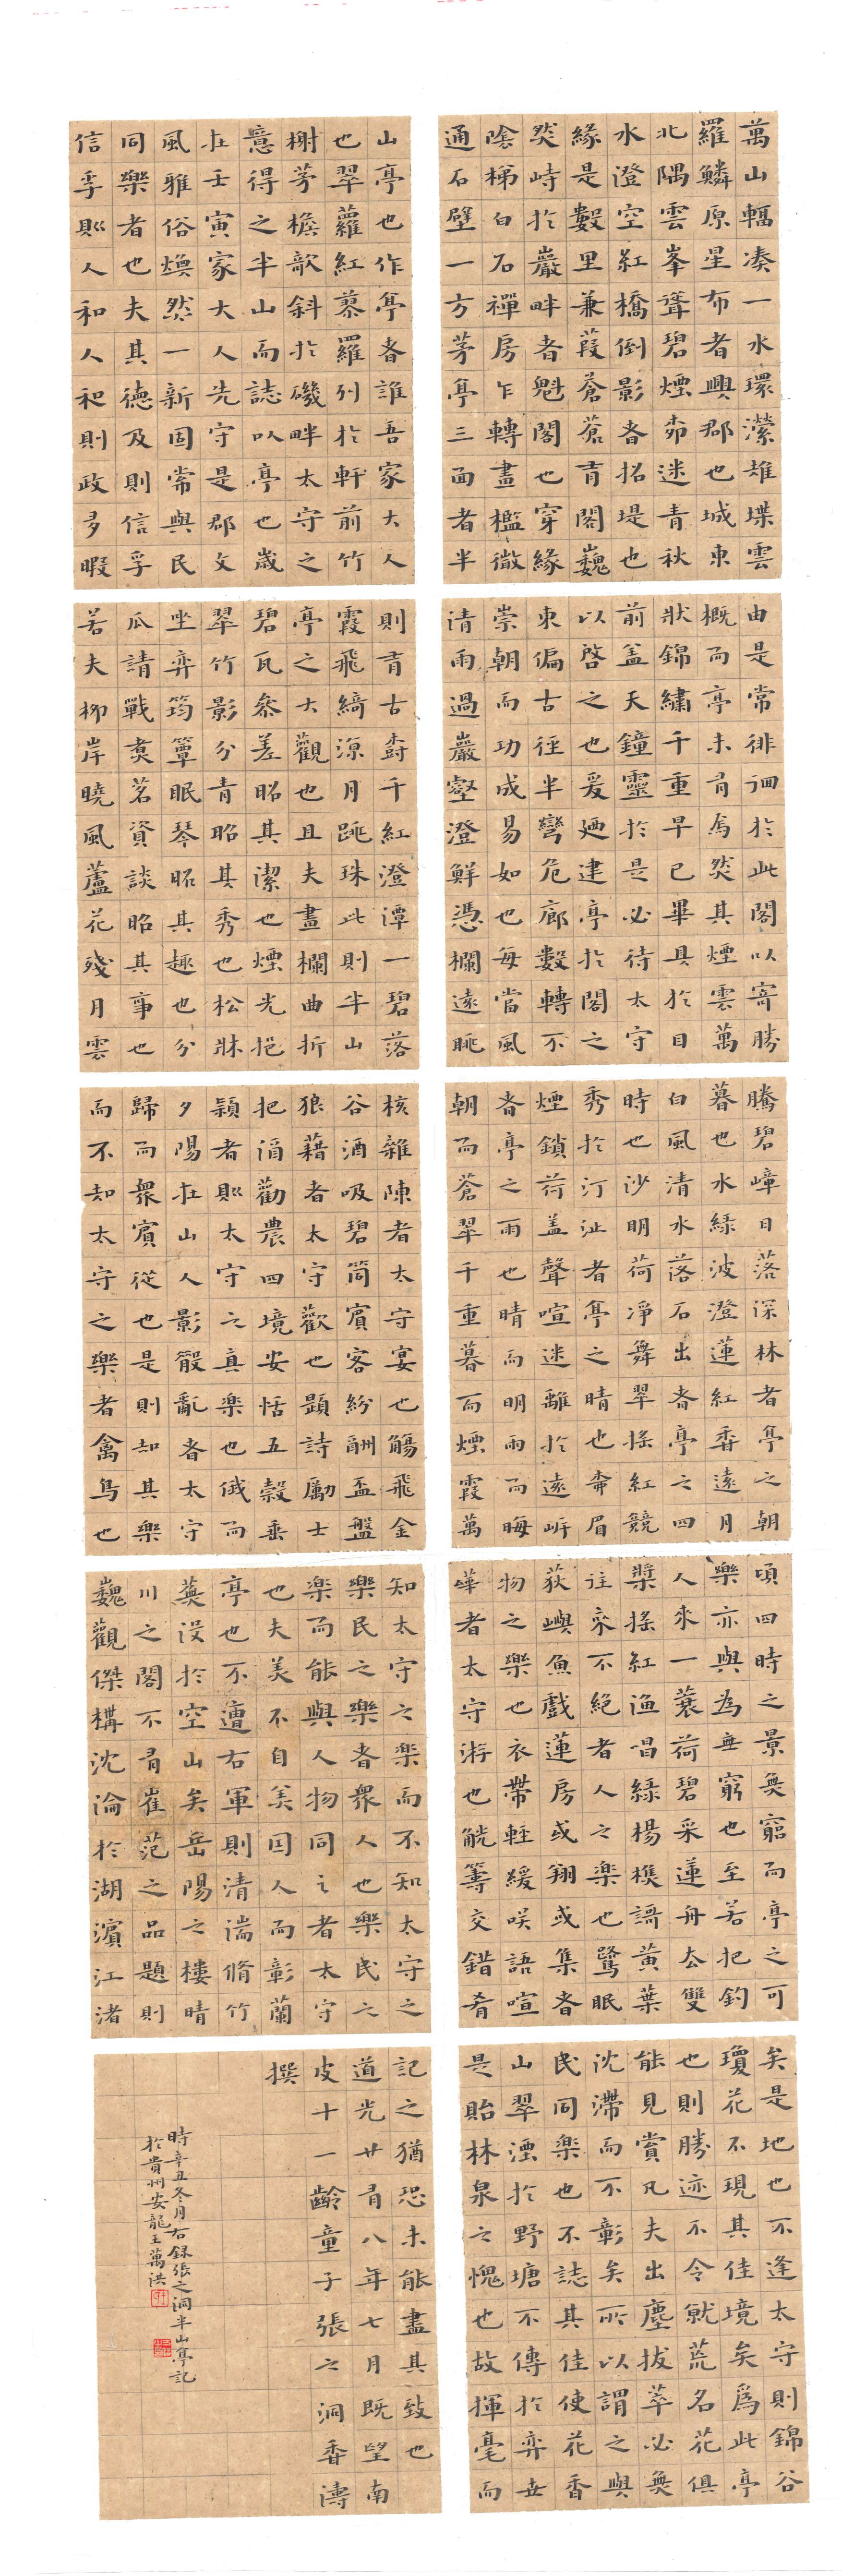 萬山輻湊一水環瀠雄堞雲
羅鱗原星布者興郡也城東
北隅雲峯聳碧煙柳迷青秋
水澄空紅橋倒影者招堤也
緣是數里蒹葭蒼蒼有閣巍
然峙於巖畔者魁閣也穿緣
陰梯白石禪房乍轉畫檻微
通石壁一方茅亭三面者半
山亭也作亭者誰吾家大人
也翠蘿紅蓼羅列於軒前竹
榭茅檐歌斜於磯畔太守之
意得之半山而誌以亭也歲
在壬寅家大人先守是郡文
風雅俗煥然一新固常與民
同樂者也夫其德及則信孚
信孚則人和人和則政多暇
由是常徘徊於此閣以寄勝
概而亭未有焉然其煙雲萬
狀錦繡千重早已畢具於目
前蓋天鐘靈於是必待太守
以啓之也爰廼建亭於閣之
東偏古徑半彎危廊數轉不
崇朝而功成易如也每當風
清雨過巖壑澄鮮憑欄遠眺
則有古樹千紅澄潭一碧落
霞飛綺涼月跳珠此則半山
亭之大觀也且夫畫欄曲折
碧瓦參差昭其潔也煙光挹
翠竹影分青昭其秀也松牀
坐弈筠簟眠琴昭其趣也分
瓜請戰煮茗資談昭其事也
若夫柳岸曉風蘆花殘月雲
騰碧嶂日落深林者亭之朝
暮也水綠波澄蓮紅香遠月
白風清水落石出者亭之四
時也沙明荷淨舞翠搖紅競
秀於汀沚者亭之晴也黛眉
煙鎖荷蓋聲喧迷離於遠岸
者亭之雨也晴而明雨而晦
朝而蒼翠千重暮而煙霞萬
頃四時之景無窮而亭之可
樂亦與為無窮也至若把釣
人來一蓑荷碧采蓮舟去雙
槳搖紅漁唱綠楊樵謌黃葉
往來不絕者人之樂也鷺眠
荻嶼魚戲蓮房或翔或集者
物之樂也衣帶輕緩咲語喧
嘩者太守游也觥籌交錯肴
核雜陳者太守宴也觴飛金
谷酒吸碧筒賓客紛酬盃盤
狼藉者太守歡也題詩勵士
把酒勸農四境安恬五穀垂
穎者則太守之真樂也俄而
夕陽在山人影散亂者太守
歸而眾賓從也是則知其樂
而不知太守之樂者禽鳥也
知太守之樂而不知太守之
樂民之樂者眾人也樂民之
樂而能與人物同之者太守
也夫美不自美因人而彰蘭
亭也不遭右軍則清湍脩竹
蕪沒於空山矣岳陽之樓晴
川之閣不有崔范之品題則
巍觀傑構沈淪於湖濱江渚
矣是地也不逢太守則錦谷
瓊花不現其佳境矣爲此亭
也則勝迹不令就荒名花俱
能見賞凡夫出塵拔萃必無
沈滯而不彰矣所以謂之與
民同樂也不誌其佳使花香
山翠湮於野塘不傳於弈世
是貽林泉之愧也故揮毫而
記之猶恐未能盡其致也
道光廿有八年七月既望南
皮十一齡童子張之洞香濤
撰
時辛丑冬月右録張之洞半山亭記
於貴州安龍王萬洪